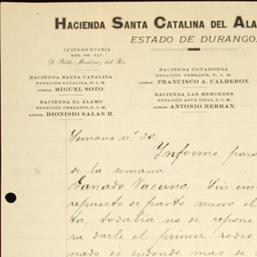 HACIENDA SANTA CATALINA DEL ALA
ESTADO DE DURANGO.
TESTAMENTERIA
DEL SR. LIC.
D. Pablo Martínez del Río
HACIENDA SANTA CATALINA
ESTACIÓN YERBANÍS, F. I. M.
ADMOR. MIGUEL SOTO.
HACIENDA EL ALAMO
ESTACIÓN YERBANÍS, F. I. M.
ADMOR. DIONISIO SALAS H.
HACIENDA COVADONGA
ESTACIÓN YERBANÍS, F. I. M.
ADMOR. FRANCISCO A. CALDERON.
HACIENDA LAS MERCEDES
ESTACIÓN AGUA VIEJA, F. I. M.
ADMOR. ANTONIO HERRAN.
Semana nº 30.
Ynforme para
de la semana
Ganado Vacuno. Sin em
repuesto de pasto nuevo el
ta, todabia no se repone
ra darle el primer rodeo
nado is esconde mas se